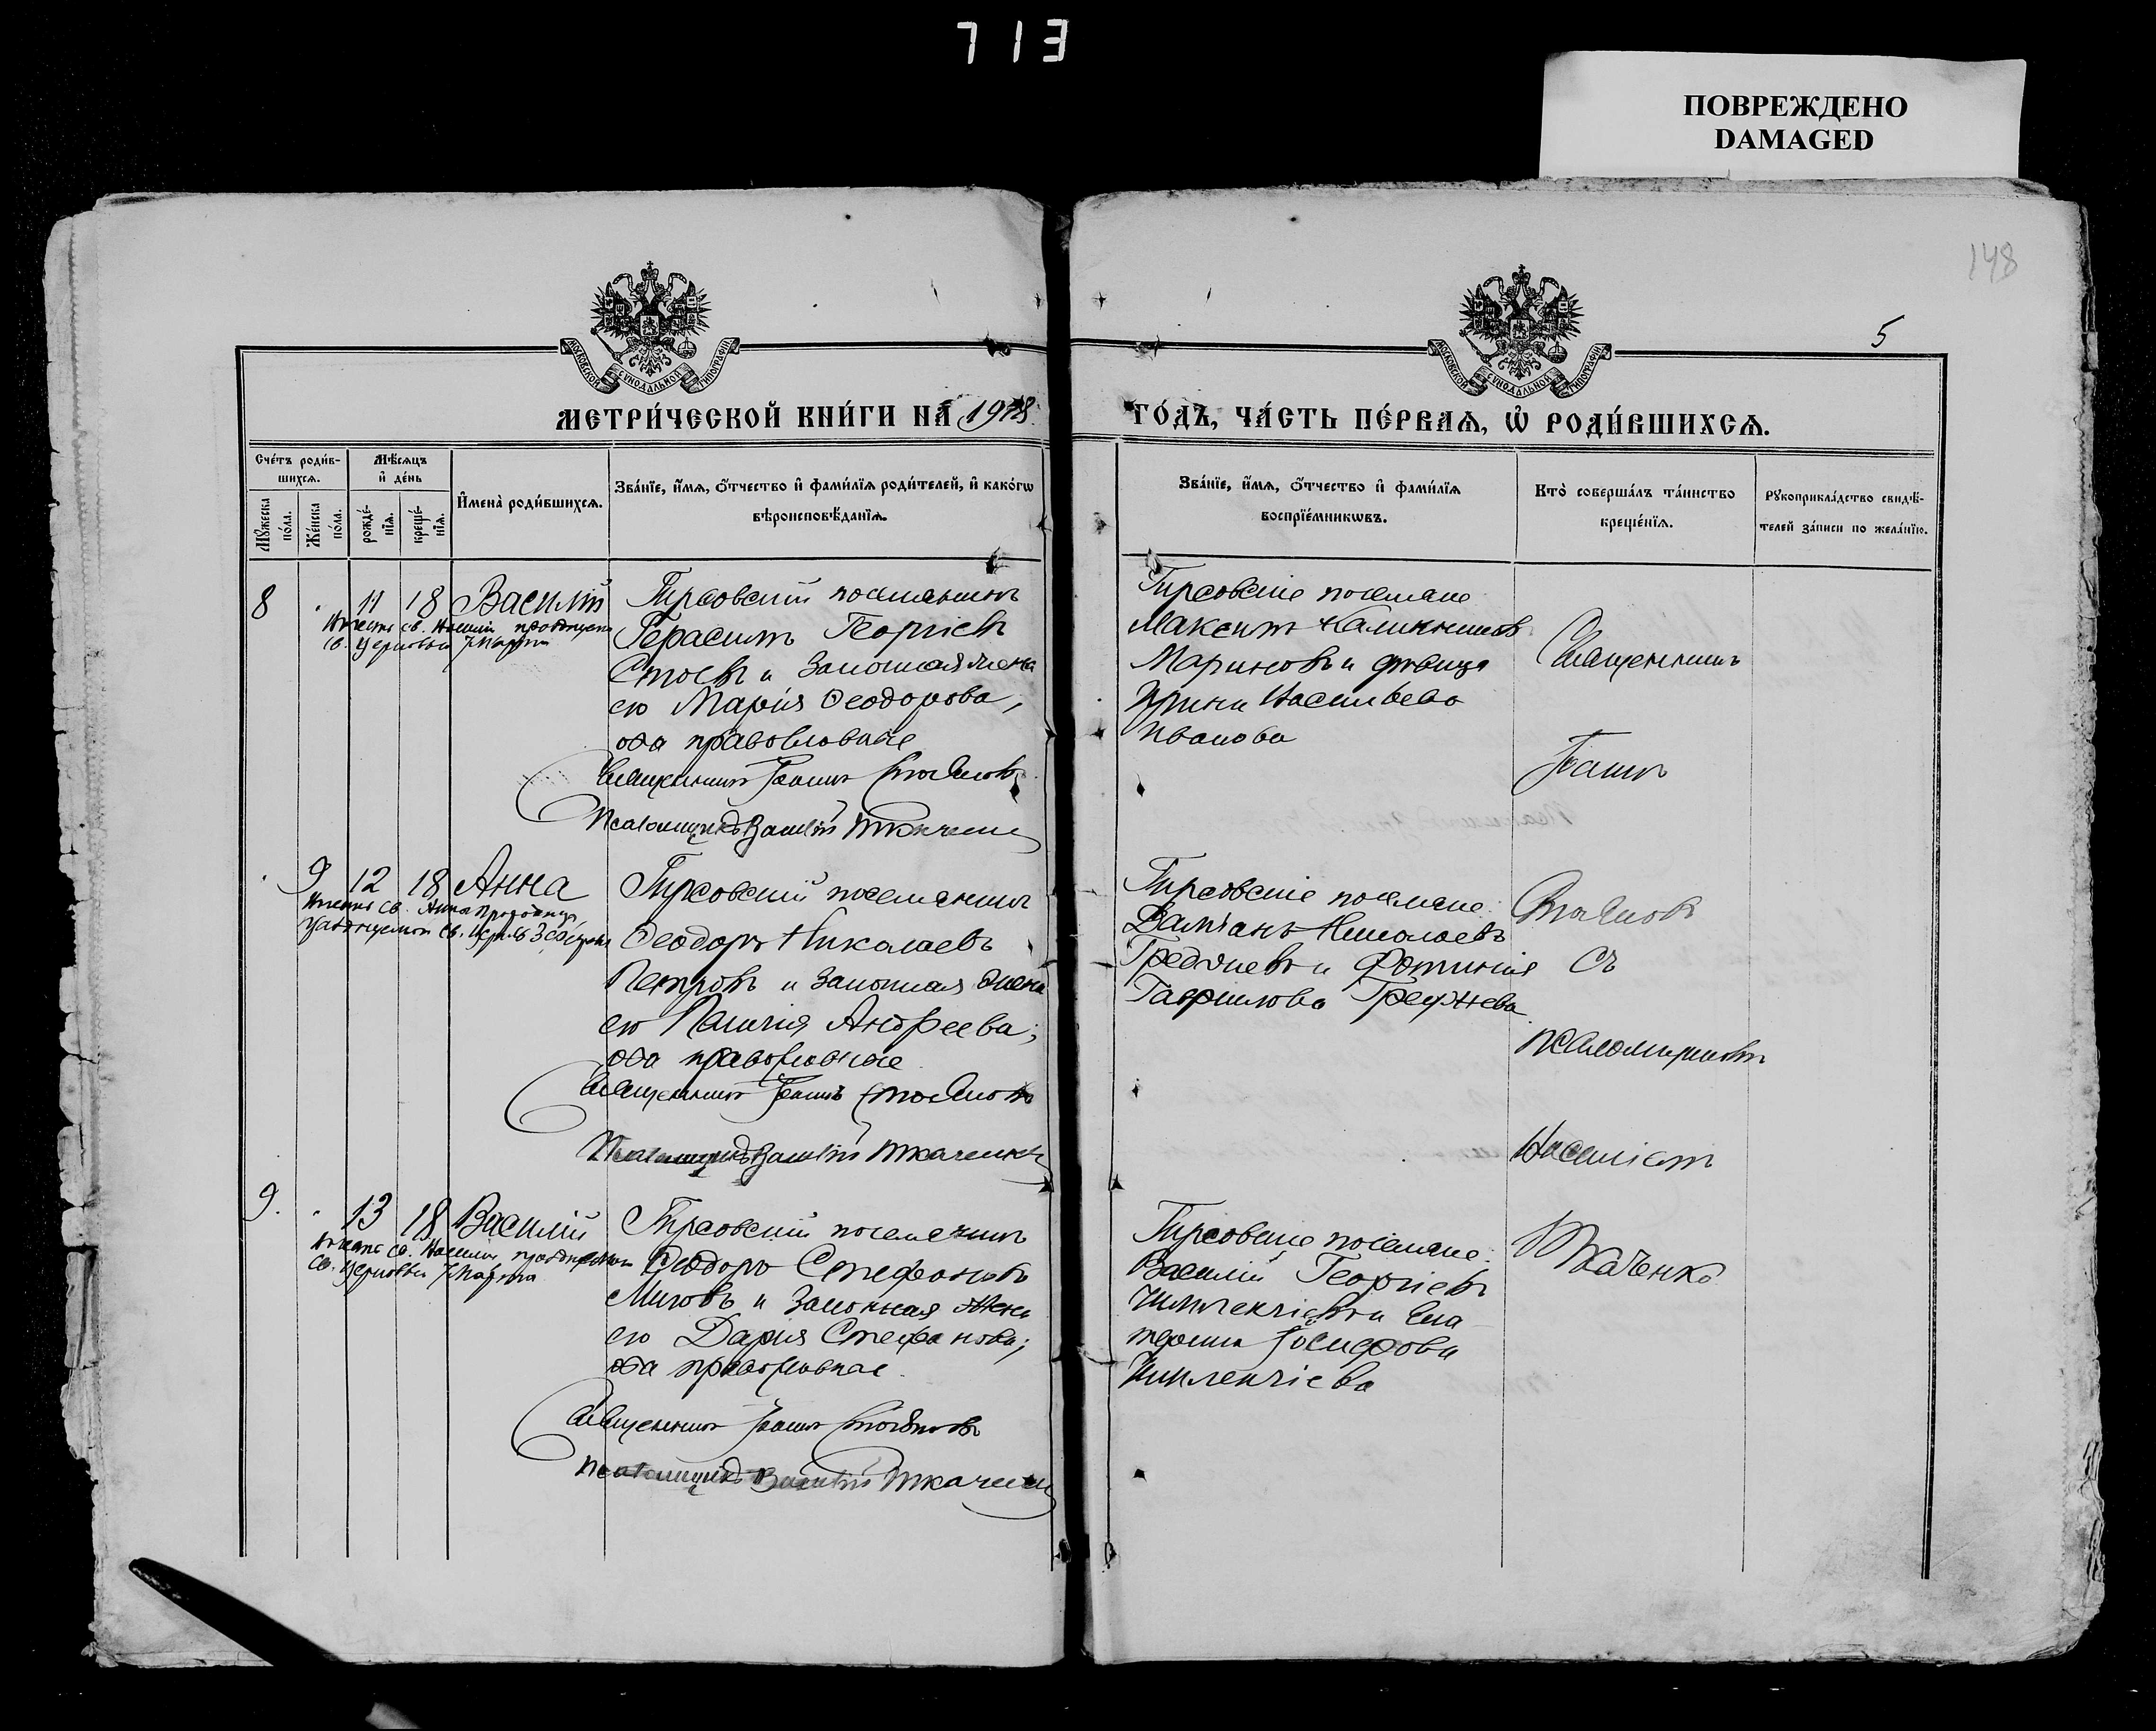 713
ПОВРЕЖДЕНО
DAMAGED
148
5
МОСКОВСКОЙ СѴНОДАЛЬНОЙ ТИПОГРАФІИ
МОСКОВСКОЙ СѴНОДАЛЬНОЙ ТИПОГРАФІИ
МЕТРИ́ЧЕСКОЙ КНИ́ГИ НА 1918
ГО́ДЪ, ЧА́СТЬ ПЕ́РВАѦ, Ѡ҆ РОДИ́ВШИХСѦ.
Сче́тъ роди́в-
шихсѧ.
Мꙋ́жеска по́ла.
Же́нска по́ла.
Мѣ́сѧцъ
и҆ де́нь
рожде́-
нїѧ.
креще́-
нїѧ.
И҆мена̀ роди́вшихсѧ.
Зва́нїе, и҆́мѧ, ѻ҆́тчество и҆ фами́лїѧ роди́телей, и҆ како́гѡ
вѣроисповѣ́данїѧ.
Зва́нїе, и҆́мѧ, ѻ҆́тчество и҆ фами́лїѧ
воспрїе́мникѡвъ.
Кто̀ соверша́лъ та́инство
креще́нїѧ.
Рꙋкоприкла́дство свидѣ́-
телей за́писи по жела́нїю.
8 11 18 Василій
св. Церковью 7 Марта
Гирсовскій поселянинъ
Герасимъ Георгіевъ
Стоевъ и законная жена
его Марія Ѳеодорова,
оба православные
Священникъ Іоаннъ Стояновъ
Псаломщикъ Василій Ткаченко
Гирсовскіе поселяне
Максимъ Калинниковъ
Мариновъ и дѣвица
Ирина Васильева
Иванова
Священникъ
Іоаннъ
9 12 18 Анна
св. Анна Пророчица,
Гирсовскій поселянинъ
Ѳеодоръ Николаевъ
Петровъ и законная жена
его Андреева;
оба православные
Священникъ Іоаннъ Стояновъ
Псаломщикъ Василій Ткаченко
Гирсовскіе поселяне:
Даміанъ Николаевъ
и Фотинія
Гаврилова
Стояновъ
съ
псаломщикомъ
Василіемъ
Ткаченко
9. 13 18 Василій
св. Церковью 7 Марта
Гирсовскій поселянинъ
Ѳеодоръ Стефановъ
Митовъ и законная жена
его Дарія Стефанова;
оба православные.
Священникъ Іоаннъ Стояновъ
Псаломщикъ Василій Ткаченко
Гирсовскіе поселяне:
Василій Георгіевъ
и Ека
терина Іосифова